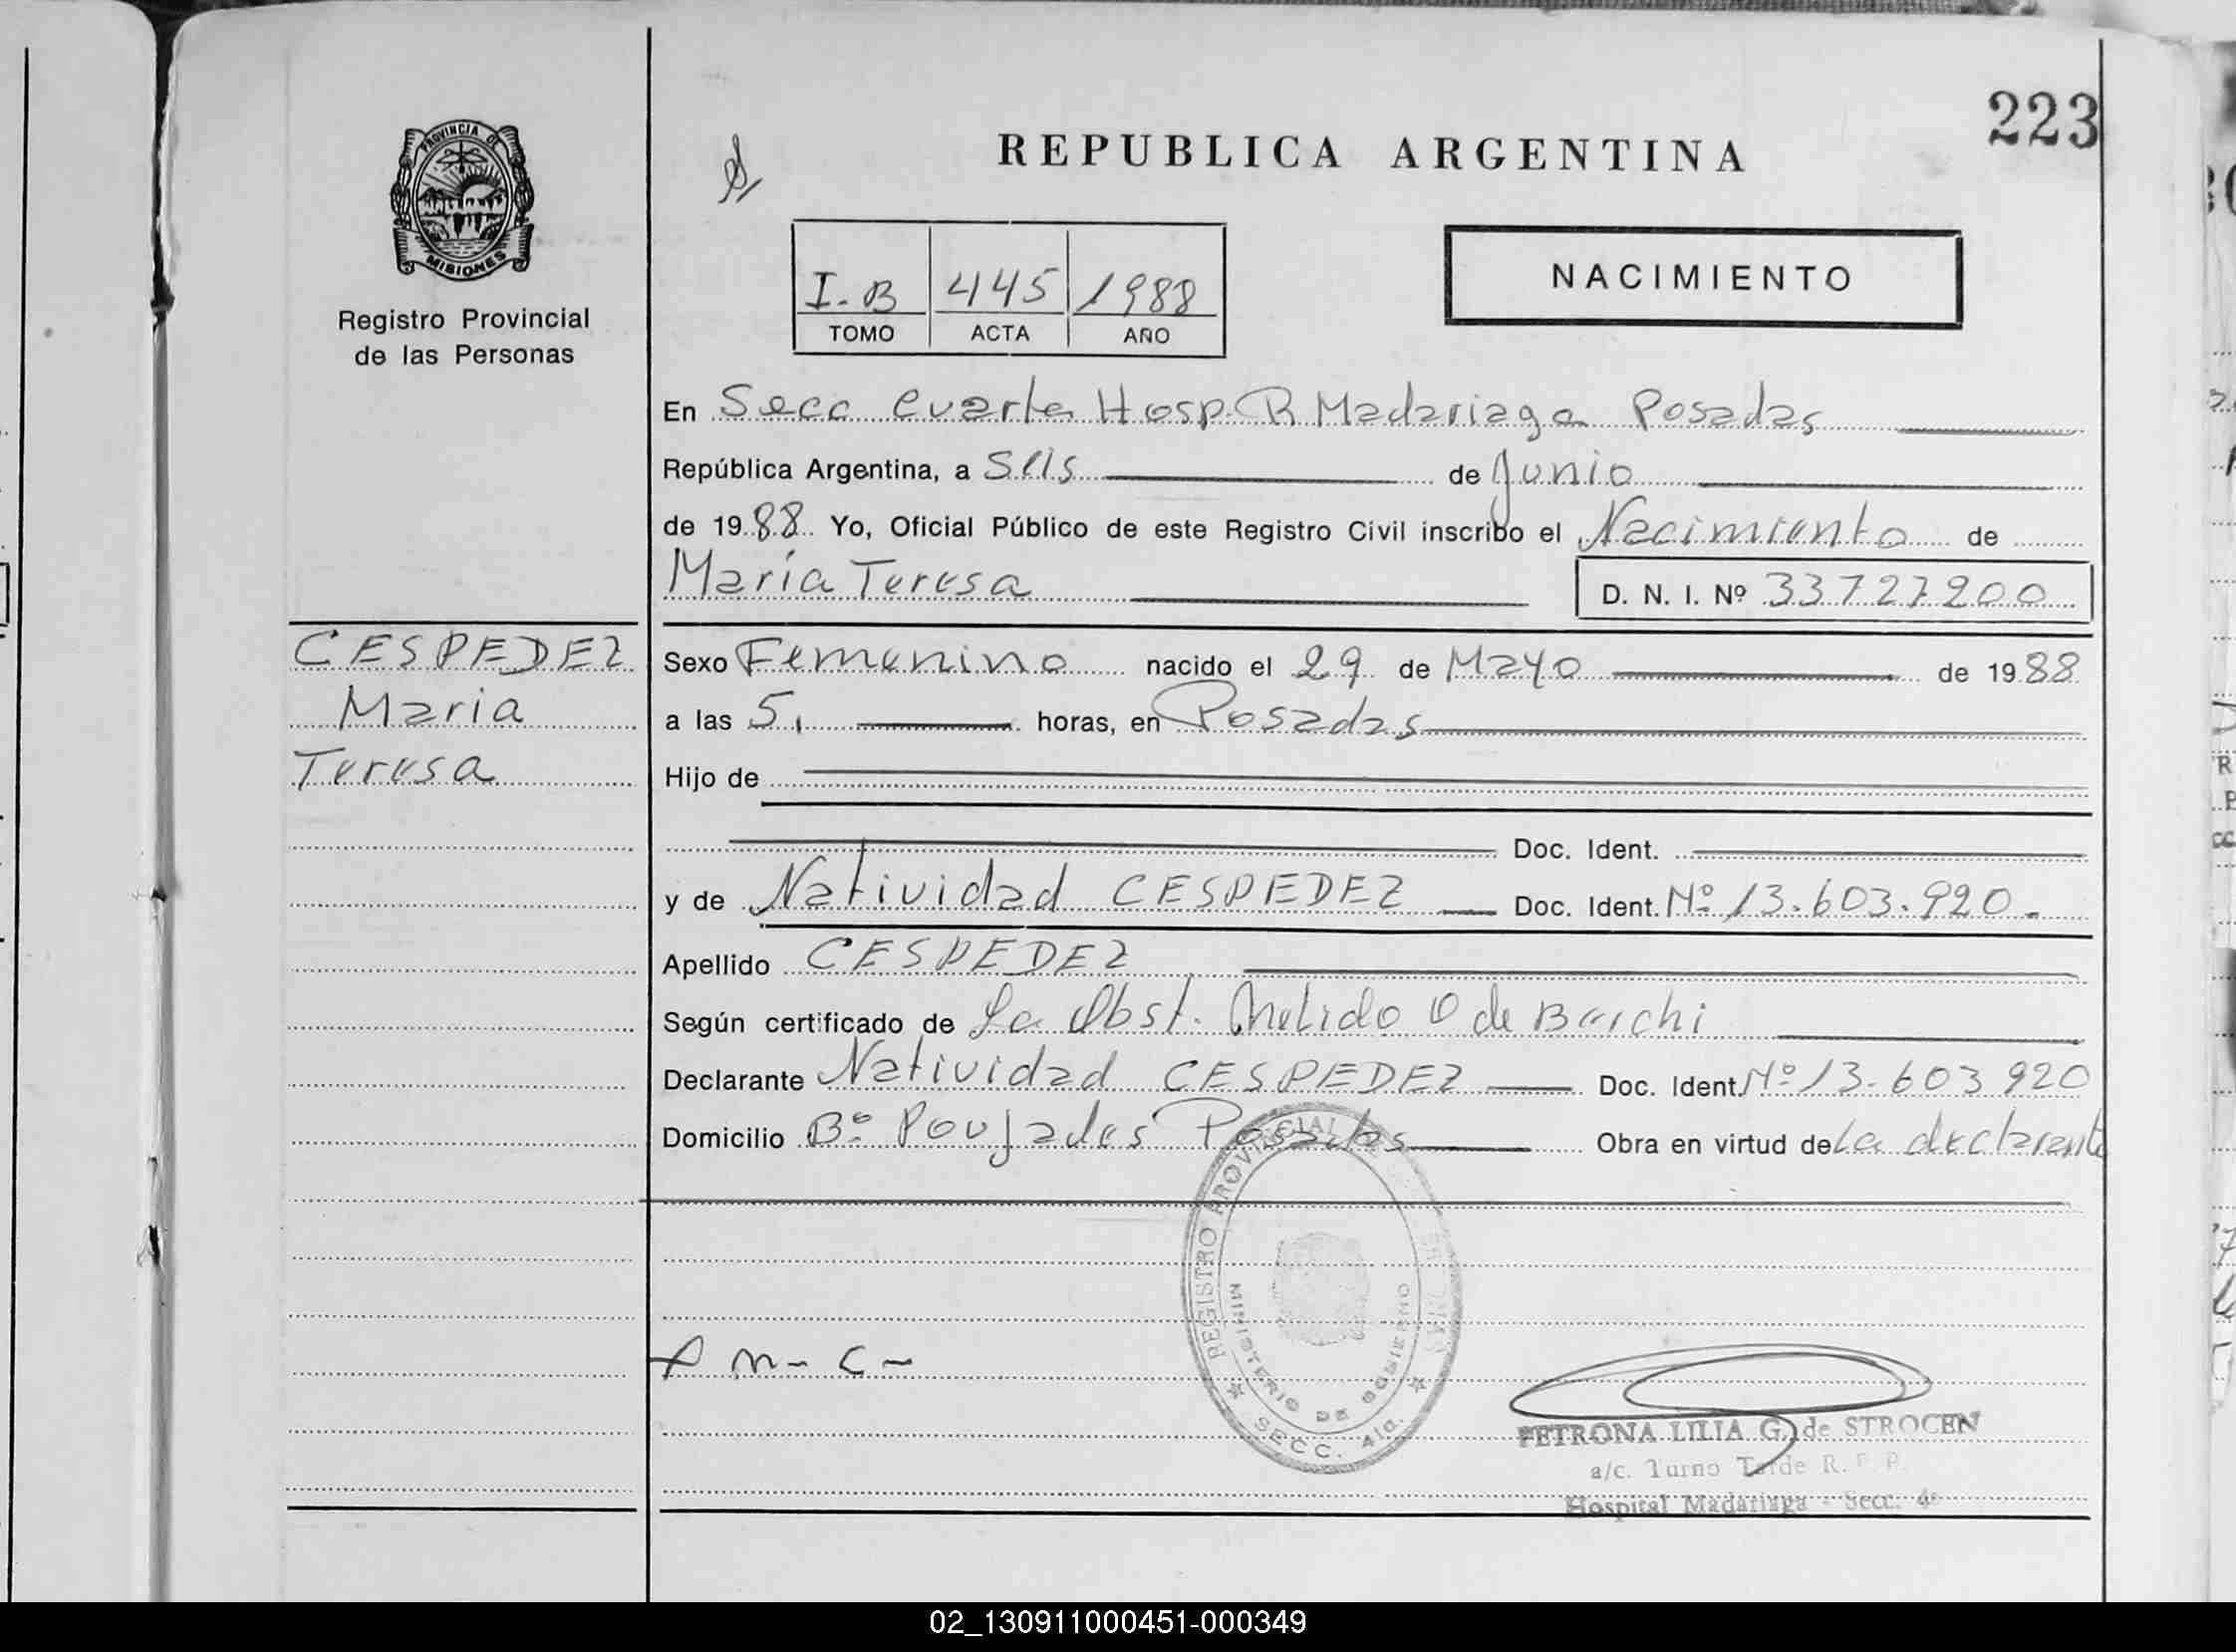 223
REPUBLICA ARGENTINA
PROVINCIA DE
MISIONES
Registro Provincial
de las Personas
I-B 445 1988
TOMO ACTA AÑO
NACIMIENTO
En Secc Cuarta Hosp. R Madariaga Posadas
República Argentina, a Seis de Junio
de 1988 Yo, Oficial Público de este Registro Civil inscribo el Nacimiento de
María Teresa D. N. I. Nº 33727200
CESPEDEZ
Maria
Teresa
Sexo Femenino nacido el 29 de Mayo de 1988
a las 5, horas, en Posadas
Hijo de
Doc. Ident.
y de Natividad CESPEDEZ Doc. Ident. Nº 13.603.920.-
Apellido CESPEDEZ
Según certificado de La Obst. O de
Declarante Natividad CESPEDEZ Doc. Ident. Nº 13.603 920
Domicilio Bº Poujades Posadas Obra en virtud de La declarante
REGISTRO PROVINCIAL
MINISTERIO DE GOBIERNO
SECC. 4ta.
PETRONA LILIA G. de STROCEN
a/c. Turno Tarde R. P. P.
Hospital Madariaga - Secc. 4a
02_130911000451-000349